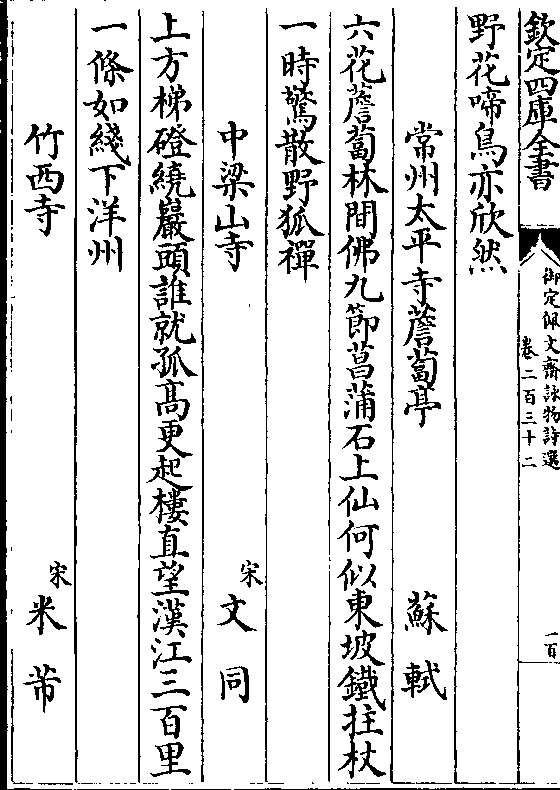 欽定四庫全書
御定佩文齋詠物詩選
卷二百三十二
一百
野花啼鳥亦欣然
常州太平寺薝蔔亭 蘇軾
六花薝蔔林間佛九節菖蒲石上仙何似東坡鐵拄杖
一時驚散野狐禪
中梁山寺 宋文同
上方梯磴繞巖頭誰就孤髙更起樓直望漢江三百里
一條如綫下洋州
竹西寺 宋米芾